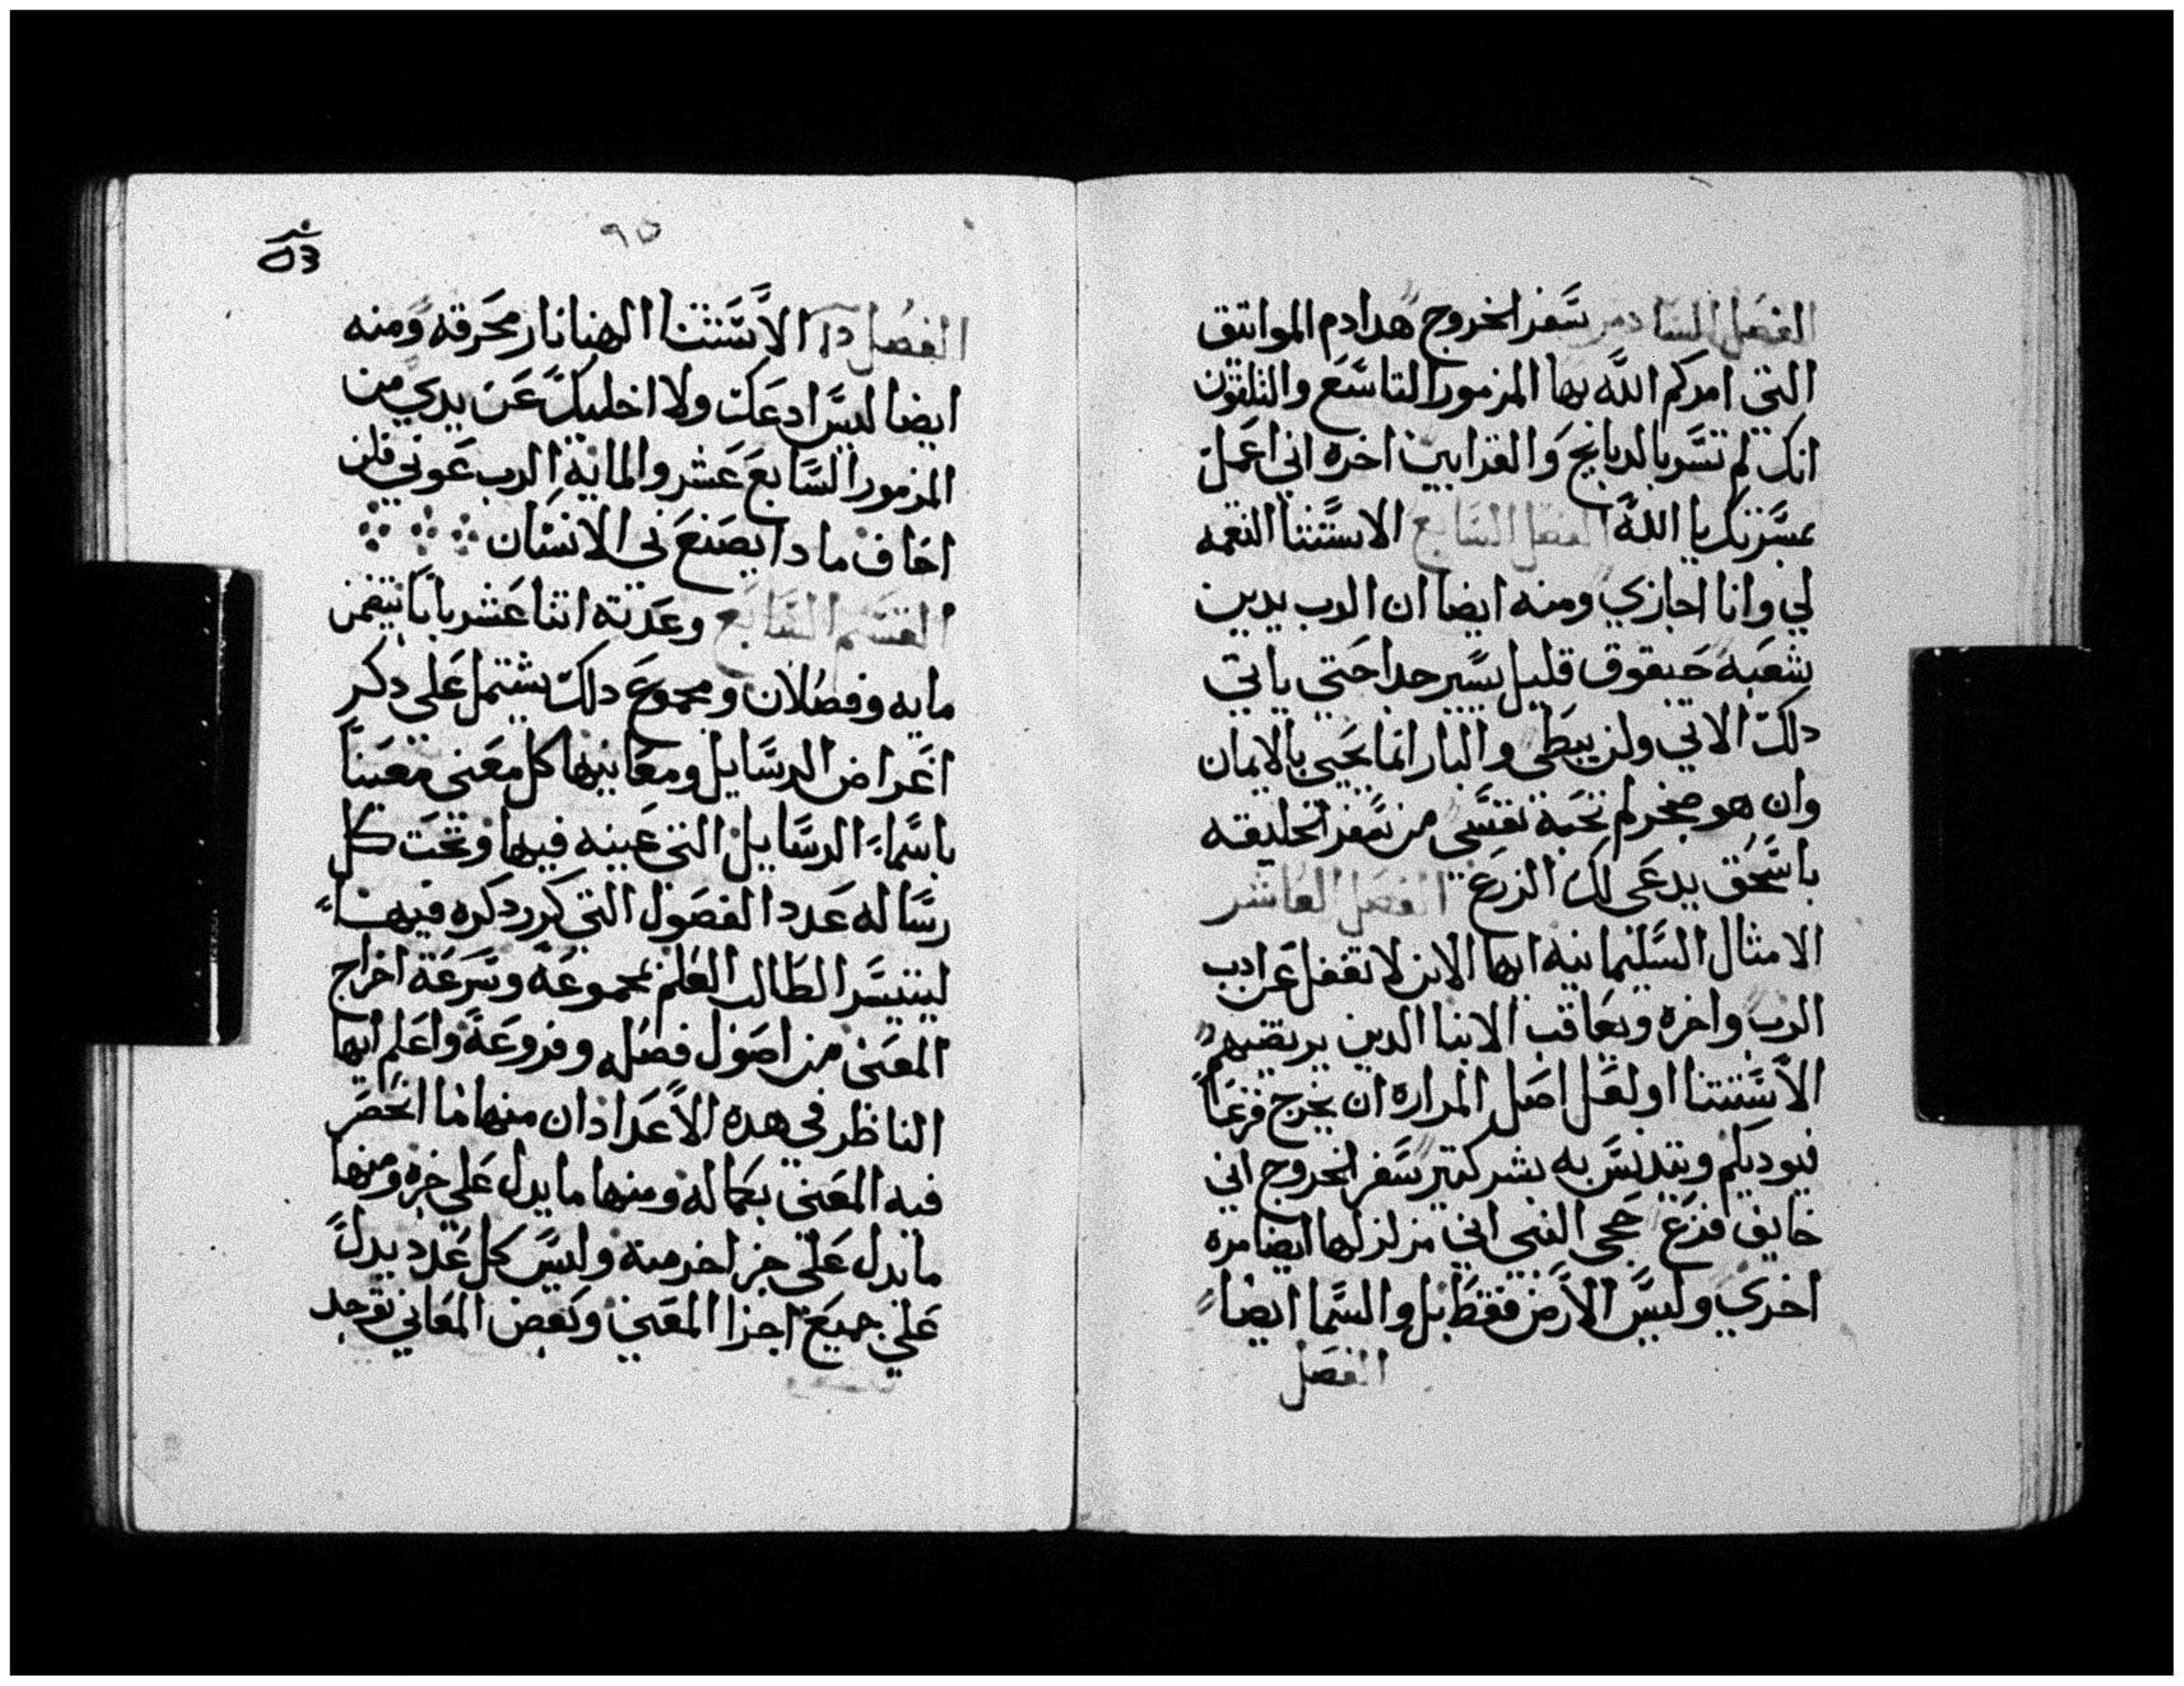 الفصل السادس سفر الخروج هدا دم المواتيق
التي امركم الله بها المزمور التاسع والتلتون
انك لم تسر بالدبايح والقرابين اخره اني اعمل
بمسرتك يا الله الفصل السابع الاستتنا النقمه
لي وانا اجازي ومنه ايضا ان الرب يدين
شعبه حبقوق قليل يسير جدا حتى ياتي
دلك الاتي ولن يبطي والبار انما يحيي بالايمان
وان هو ضجر لم تحبة نفسي من سفر الخليقه
باسحق يدعى لك الزرع الفصل العاشر
الامثال السليمانيه ايها الابن لا تغفل عن ادب
الرب واخره ويعاقب الابنا الدين يرتضيهم
الاستتنا اولعل اصل المراره ان يخرج فرعا
فيوديكم ويتدنس به بشر كتير سفر الخروج اني
خايف فزع حجي النبي اني مزلزلها ايضا مره
اخري وليس الارض فقط بل والسما ايضا
الفصل
٩٥
الفصل الاستتنا الهنا نار محرقه ومنه
ايضا ليس ادعك ولا اخليك عن يدي من
المزمور السابع عشر والمايه الرب عوني فلن
اخاف ما دا يصنع بي الانسان
القسم السابع وعدته اتنا عشر بابا يتضمن
مايه وفصلان ومجموع دلك يشتمل على دكر
اغراض الرسايل ومعانيها كل معنى معينا
باسماء الرسايل التي عينه فيها وتحت كل
رساله عدد الفصول التي كرر دكره فيها
ليتيسر الطالب العلم بمجموعه وسرعة اخراج
المعنى من اصول فصله وفروعه واعلم ايها
الناظر في هده الاعداد ان منها ما انحصر
فيه المعنى بكماله ومنها ما يدل على جزه ومنها
ما يدل على جز اخر منه وليس كل عدد يدل
علي جميع اجزا المعنى وبعض المعاني توجد